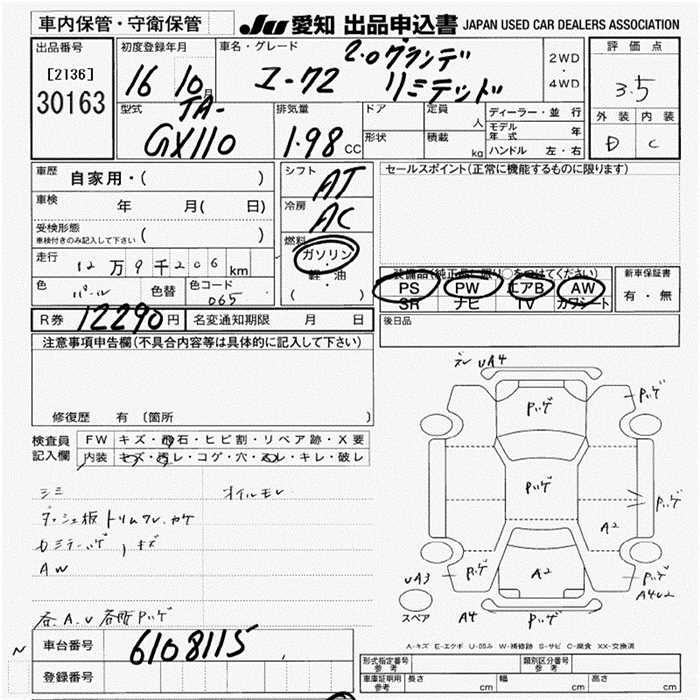 車内保管・守衛保管
JU 愛知 出品申込書 JAPAN USED CAR DEALERS ASSOCIATION
出品番号
[2136]
30163
初度登録年月
16 10月
車名・グレード
2.0グランデ
リミテッド
2WD
・
4WD
評価点
3.5
外装 内装
D C
型式
TA-
GX110
排気量
1.98 CC
ドア
形状
定員
人
積載
kg
ディーラー・並行
モデル年式 年
ハンドル 左・右
車歴
自家用・( )
車検
年 月( 日)
受検形態
車検付きのみ記入して下さい ( )
走行
12万9千206 km
色
パール
色替
色コード
065
シフト
AT
冷房
AC
燃料
ガソリン
・
軽油
( )
セールスポイント(正常に機能するものに限ります)
装備品(純正品に限り○をつけてください)
PS PW エアB AW
SR ナビ TV カワシート
新車保証書
有・無
R券 12290円
名変通知期限 月 日
後日品
注意事項申告欄(不具合内容等は具体的に記入して下さい)
修復歴 有 〔箇所
検査員
記入欄
FW キズ・飛石・ヒビ割・リペア跡・X要
内装 キズ・汚レ・コゲ・穴・スレ・キレ・破レ
シミ オイルモレ
ダッシュ板 トリムワレ・カケ
AW
各A.U 各所Pハゲ
車台番号
6108115
登録番号
UA4
Pハゲ
Pハゲ
Pハゲ
Pハゲ
A2
UA3
Pハゲ
A2
Pハゲ
A4U2
スペア
A4
Pハゲ
A-キズ E-エクボ U-凹み W-補修跡 S-サビ C-腐食 XX-交換済
形式指定番号
参考
類別区分番号
参考
車庫証明用
参考
長さ cm 幅 cm 高さ cm